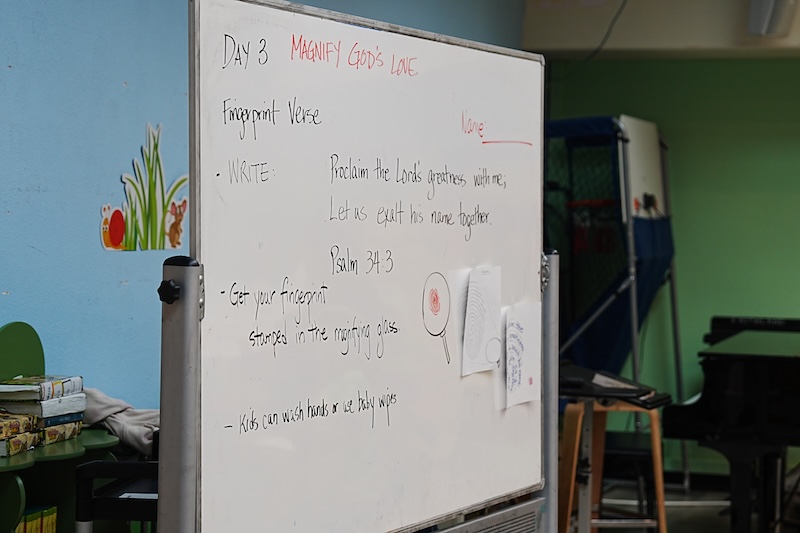 DAY 3 MAGNIFY GOD'S LOVE
Fingerprint Verse
Name
• WRITE: Proclaim the Lord's greatness with me;
Let us exalt his name together.
Psalm 34:3
- Get your fingerprint
stamped in the magifying glass.
- Kids can wash hands or use baby wipes